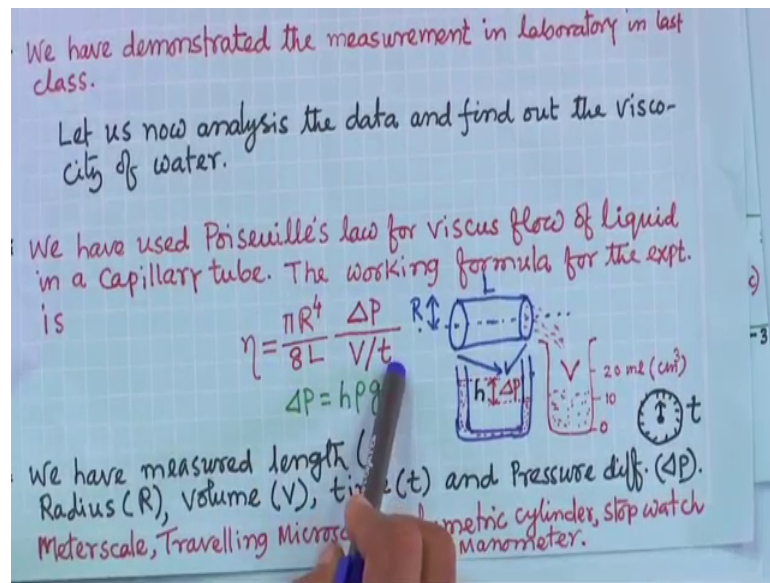 We have demonstrated the measurement in laboratory in last
class.
Let us now analysis the data and find out the visco-
city of water.
We have used Poiseuille's law for viscus flow of liquid
in a capillary tube. The working formula for the expt.
is
η = πR⁴/8L ΔP/V/t
ΔP = hρg
R L
h ΔP
V 20 ml (cm³)
10
0
t
We have measured length (
Radius (R), volume (V), (t) and Pressure diff. (ΔP).
Meterscale, Travelling metric cylinder, stop watch
Manometer.
c)
-3